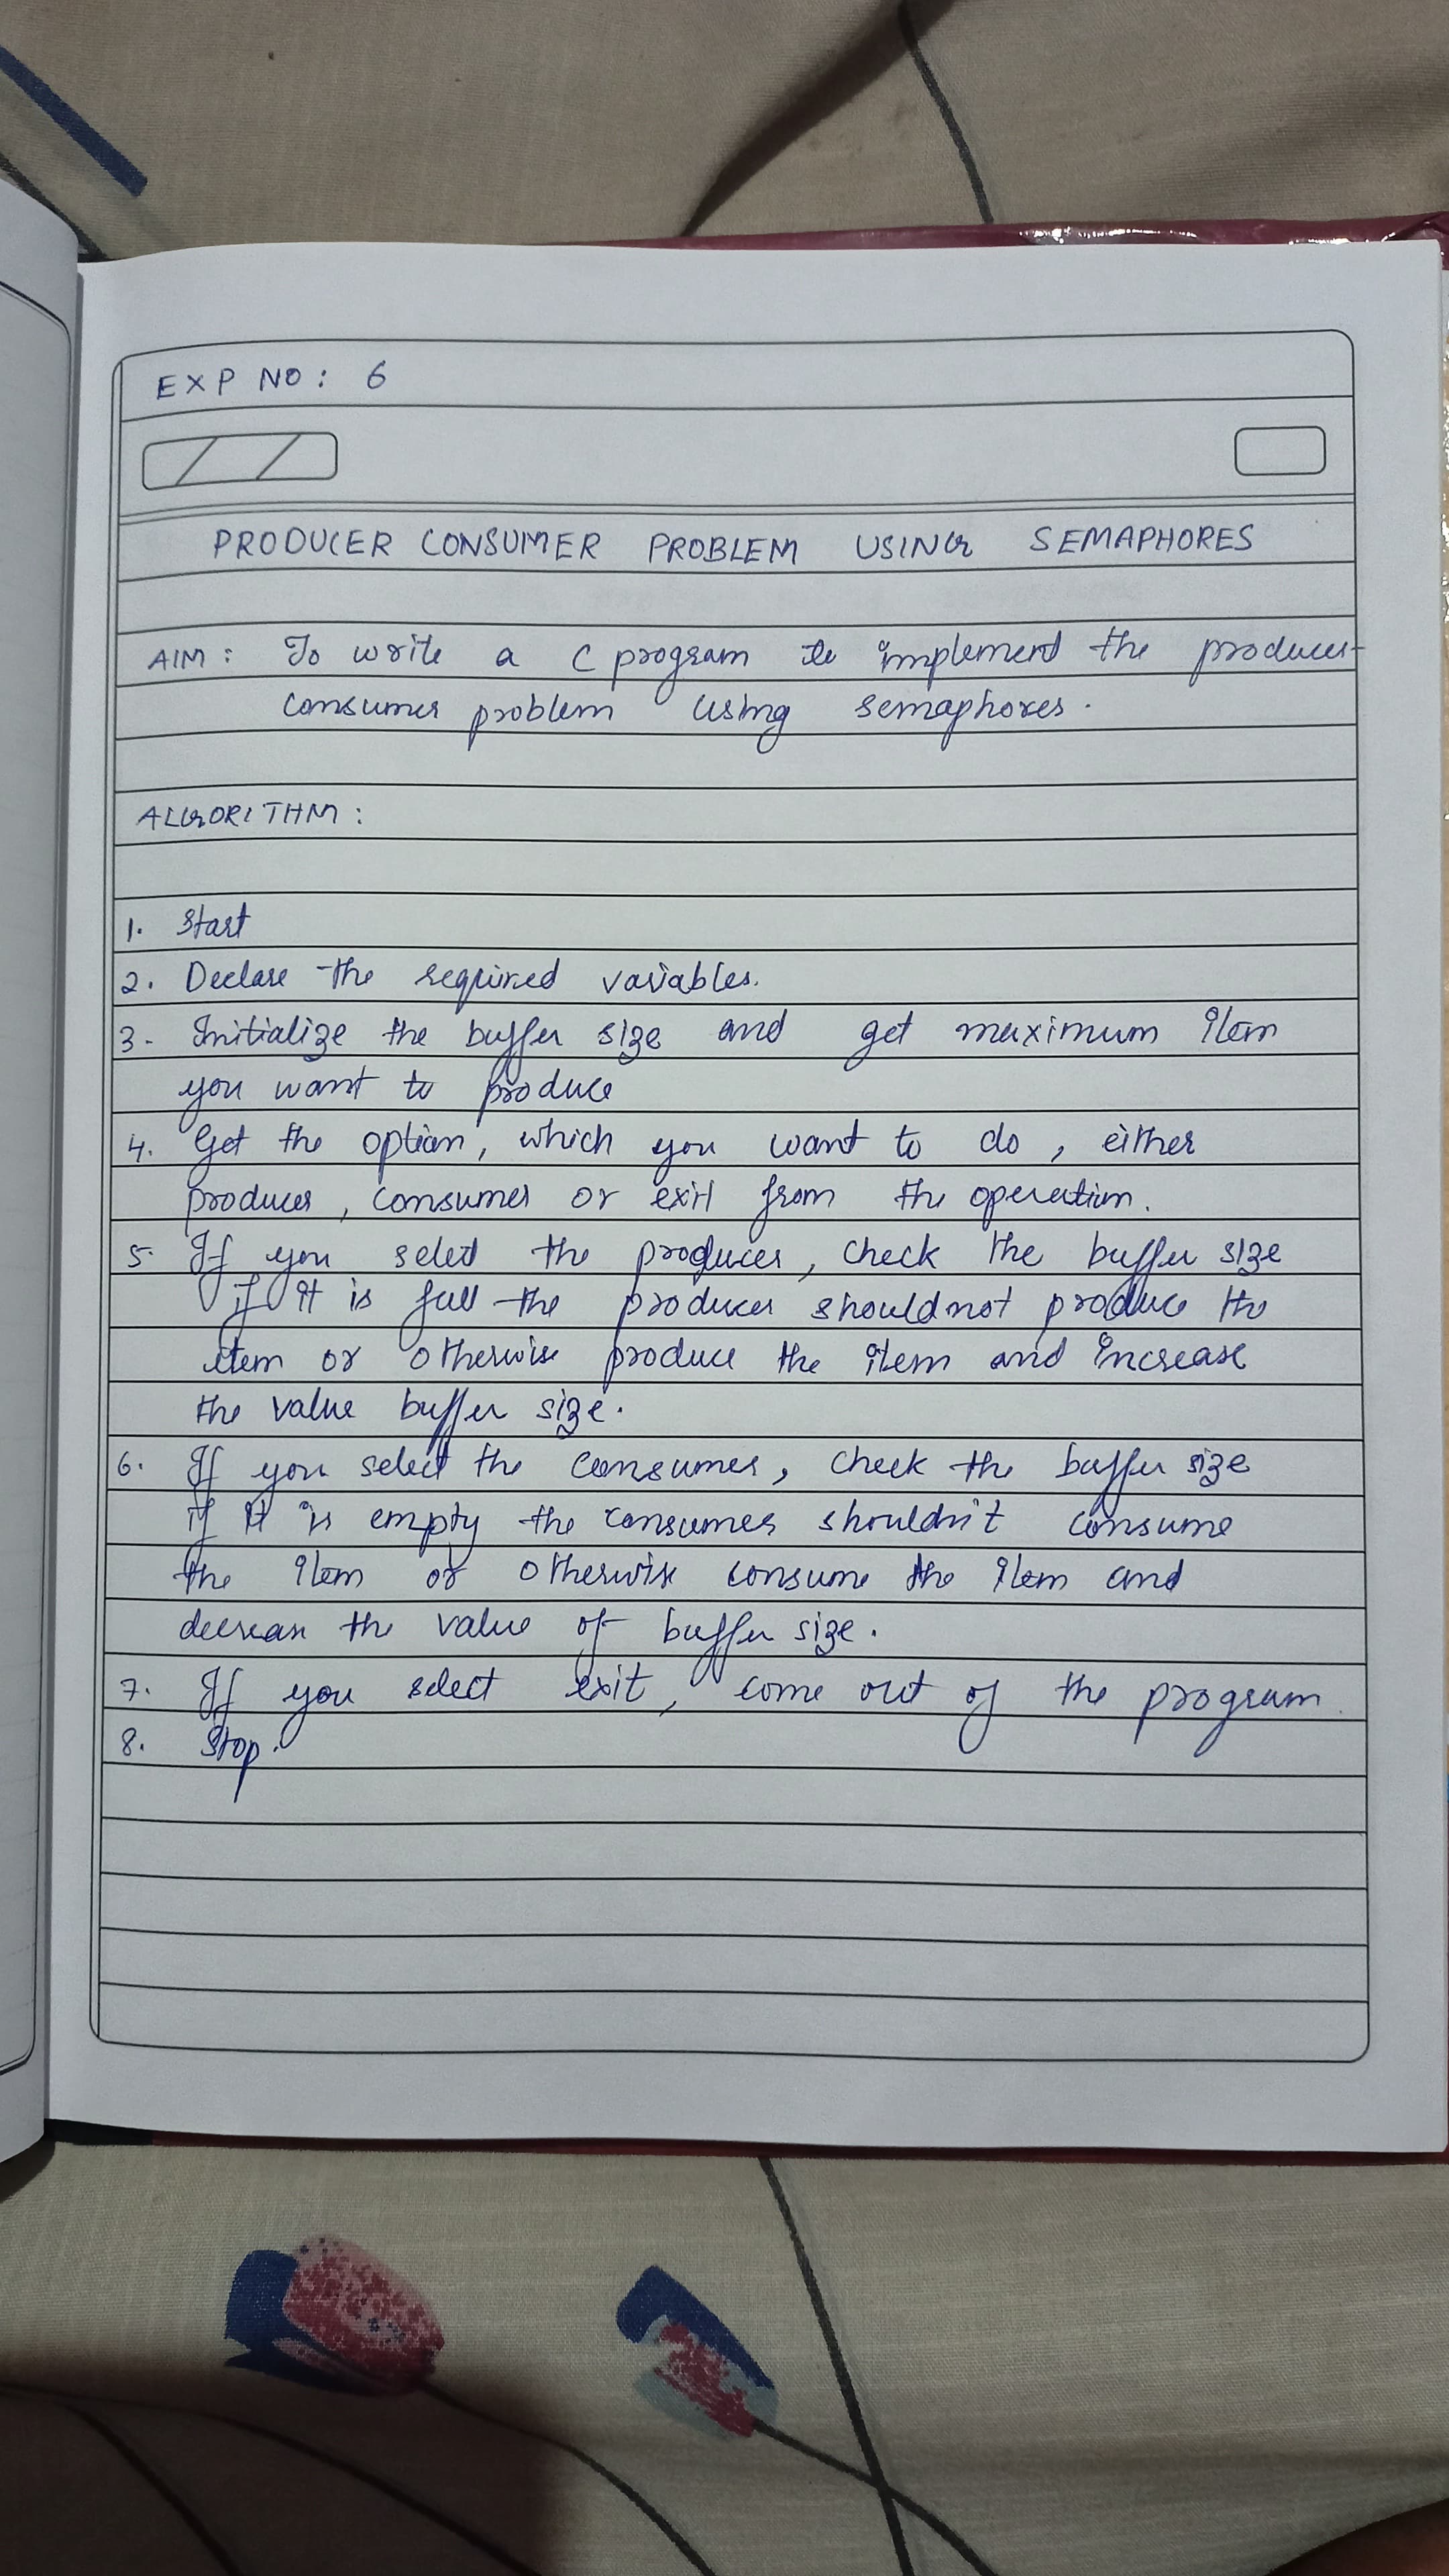 EXP NO: 6
PRODUCER CONSUMER PROBLEM USING SEMAPHORES
AIM: To write a C program to implement the producer-
consumer problem using semaphores.
ALGORITHM:
1. Start
2. Declare the required variables.
3. Initialize the buffer size and get maximum item
you want to produce
4. Get the option, which you want to do, either
producer, consumer or exit from the operation.
5. If you select the producer, check the buffer size
if it is full the producer should not produce the
item or otherwise produce the item and increase
the value buffer size.
6. If you select the consumer, check the buffer size
if it is empty the consumer shouldn't consume
the item or otherwise consume the item and
decrease the value of buffer size.
7. If you select exit, come out of the program.
8. Stop.